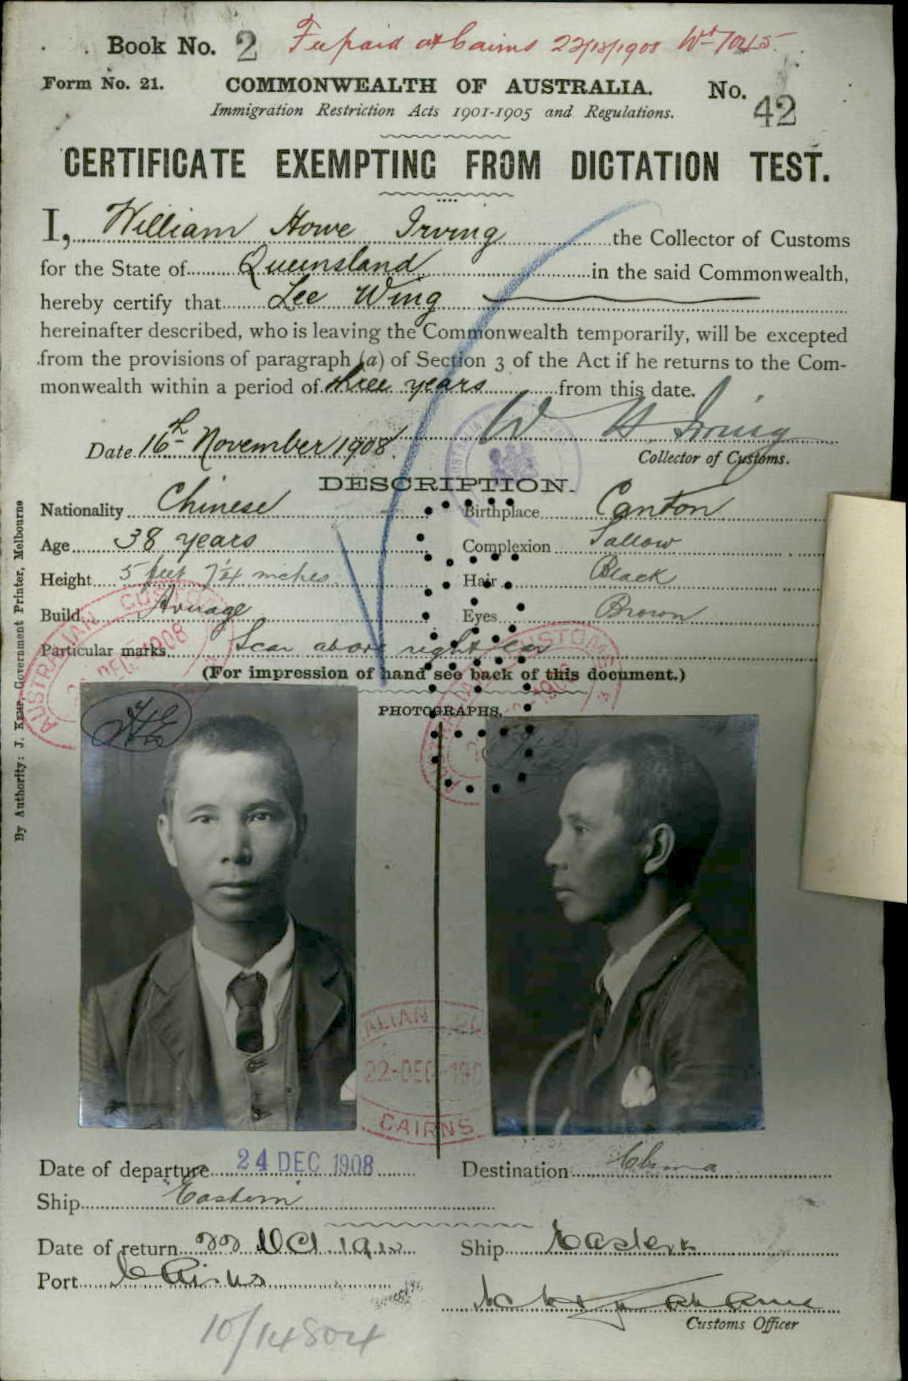 Book No. 2 Fee paid at Cairns 22/12/1908
Form No. 21. COMMONWEALTH OF AUSTRALIA. No. 42
Immigration Restriction Acts 1901-1905 and Regulations.
CERTIFICATE EXEMPTING FROM DICTATION TEST.
I, William Howe Irving the Collector of Customs
for the State of Queensland in the said Commonwealth,
hereby certify that Lee Wing
hereinafter described, who is leaving the Commonwealth temporarily, will be excepted
from the provisions of paragraph (a) of Section 3 of the Act if he returns to the Com-
monwealth within a period of three years from this date.
W H Irving
Date 16th November 1908.
Collector of Customs.
DESCRIPTION.
Nationality Chinese Birthplace Canton
Age 38 years Complexion Sallow
Height 5 feet 7¼ inches Hair Black
Build Average Eyes Brown
Particular marks Scar above right ear
(For impression of hand see back of this document.)
PHOTOGRAPHS.
By Authority: J. Kemp, Government Printer, Melbourne
AUSTRALIAN CUSTOMS
22-DEC-190
CAIRNS
Date of departure 24 DEC 1908 Destination China
Ship Eastern
Date of return 22 Oct 1910 Ship Eastern
Port Cairns
Customs Officer
10/14804